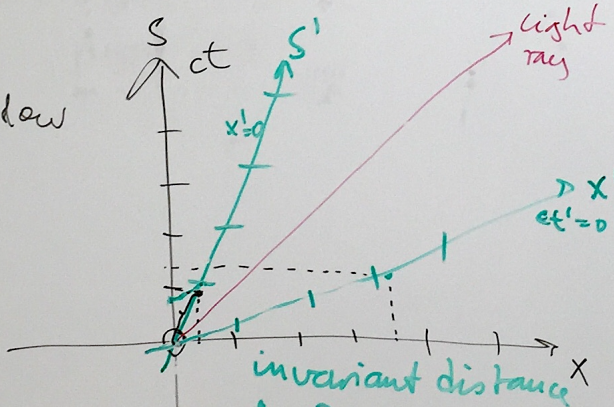 S
ct
S'
light
ray
low
x'=0
X
ct'=0
X
invariant distance